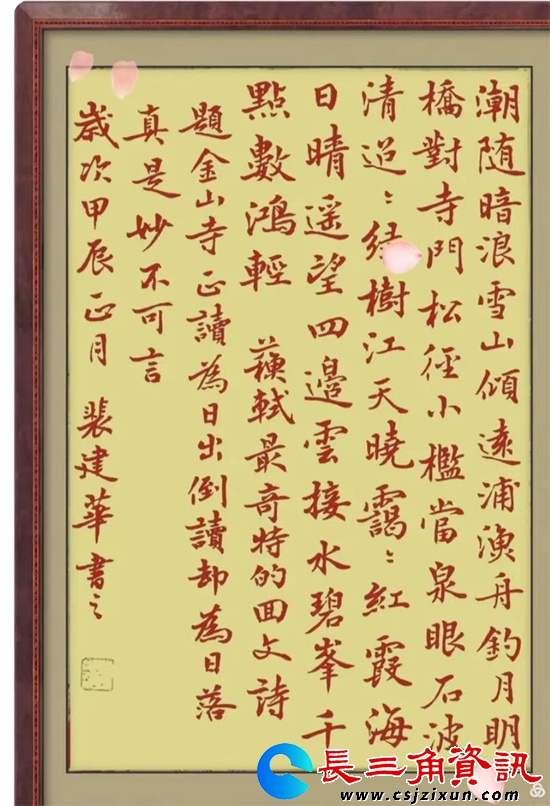 潮随暗浪雪山傾遠浦漁舟釣月明
橋對寺門松徑小檻當泉眼石波
清迢々緑樹江天曉靄々紅霞海
日晴遥望四邊雲接水碧峯千
點數鴻輕 蘇軾最奇特的回文詩
題金山寺正讀為日出倒讀却為日落
真是妙不可言
歲次甲辰正月 裴建華書之
長三角資訊
www.csjzixun.com